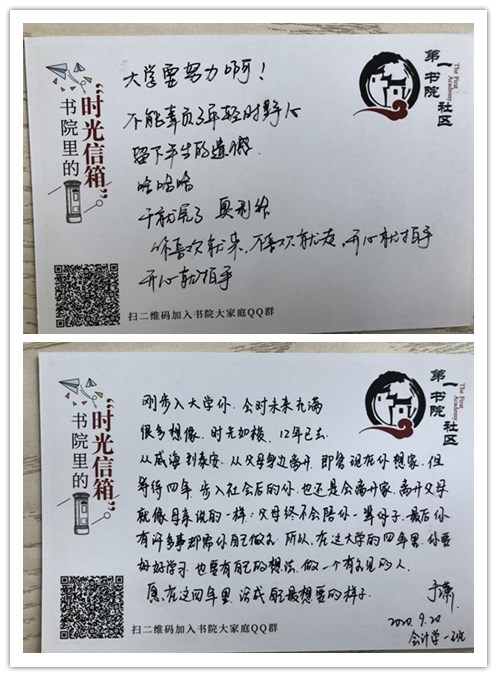 “时光信箱”
书院里的
大学要努力啊！
不能辜负了年轻时野心
留下半生的遗憾.
哈哈哈
干就完了 奥利给
你喜欢就来，不喜欢就走，开心就拍手
开心就拍手
第一书院社区
The First Academy
扫二维码加入书院大家庭QQ群
“时光信箱”
书院里的
刚步入大学你.会对未来充满
很多想像.时光如梭，12年已去.
从威海到泰安.从父母身边离开.即管现在你想家.但
等待四年.步入社会后的你.也还是会离开家.离开父母
就像母亲说的一样：父母终不会陪你一辈好子.最后你
有许多事都需你自己做么.所以.在这大学的四年里.你要
好好学习.也要有自己的想法.做一个有见的人.
愿.在这四年里.活成自己最想要的样子.
于潇
2020.9.20
会计学一班
第一书院社区
The First Academy
扫二维码加入书院大家庭QQ群